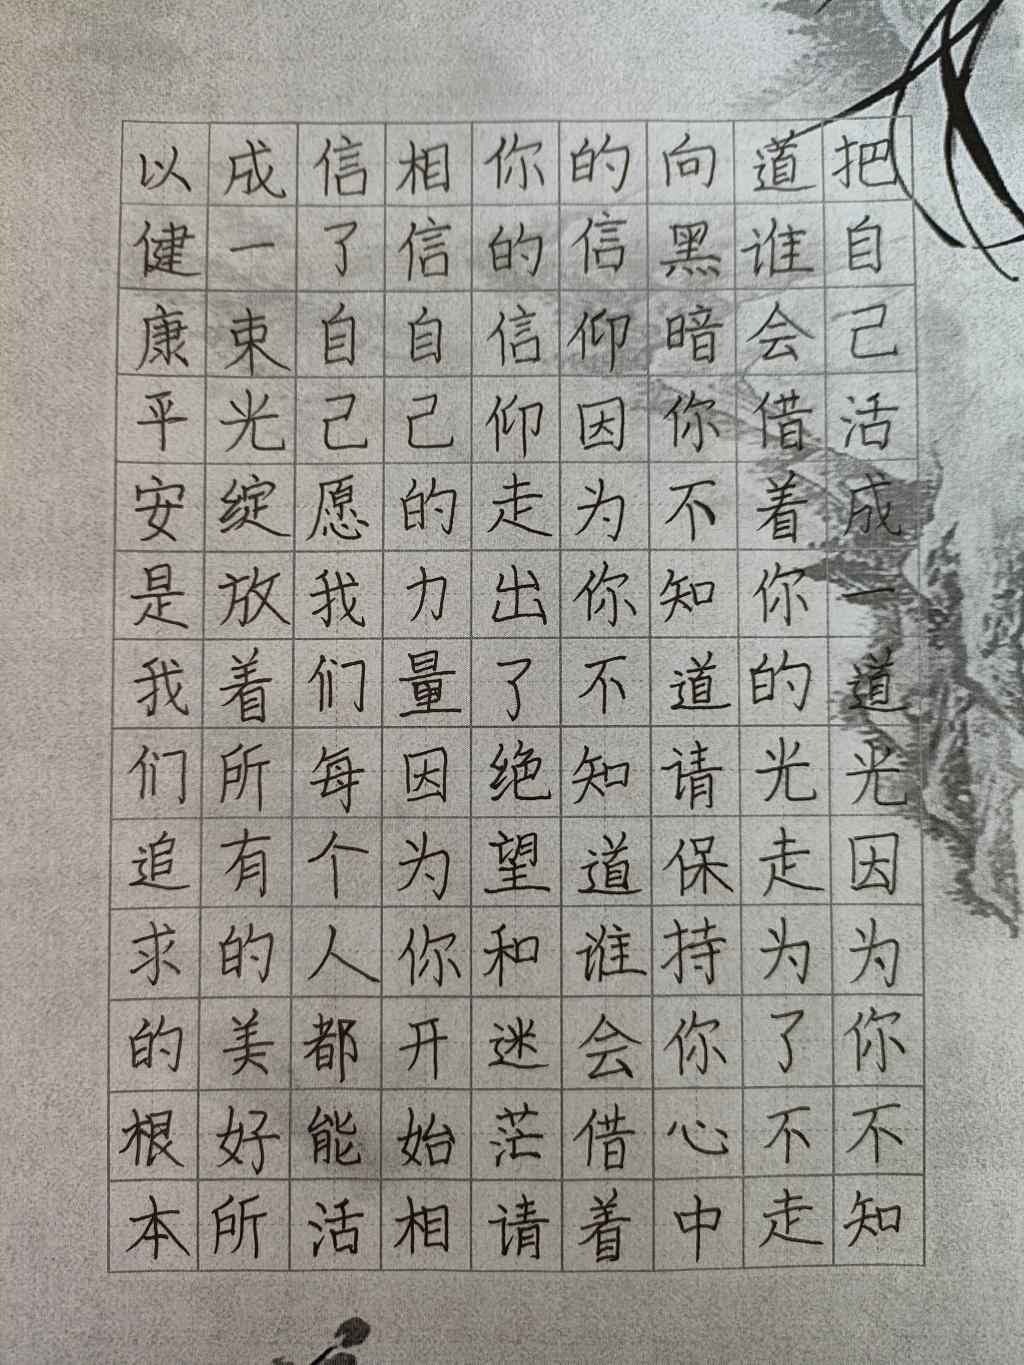 把自己活成一道光因为你不知
道谁会借着你的光走为了不走
向黑暗你不知道请保持你心中
的信仰因为你不知道谁会借着
你的信仰走出了绝望和迷茫请
相信自己的力量因为你开始相
信了自己愿我们每个人都能活
成一束光绽放着所有的美好所
以健康平安是我们追求的根本